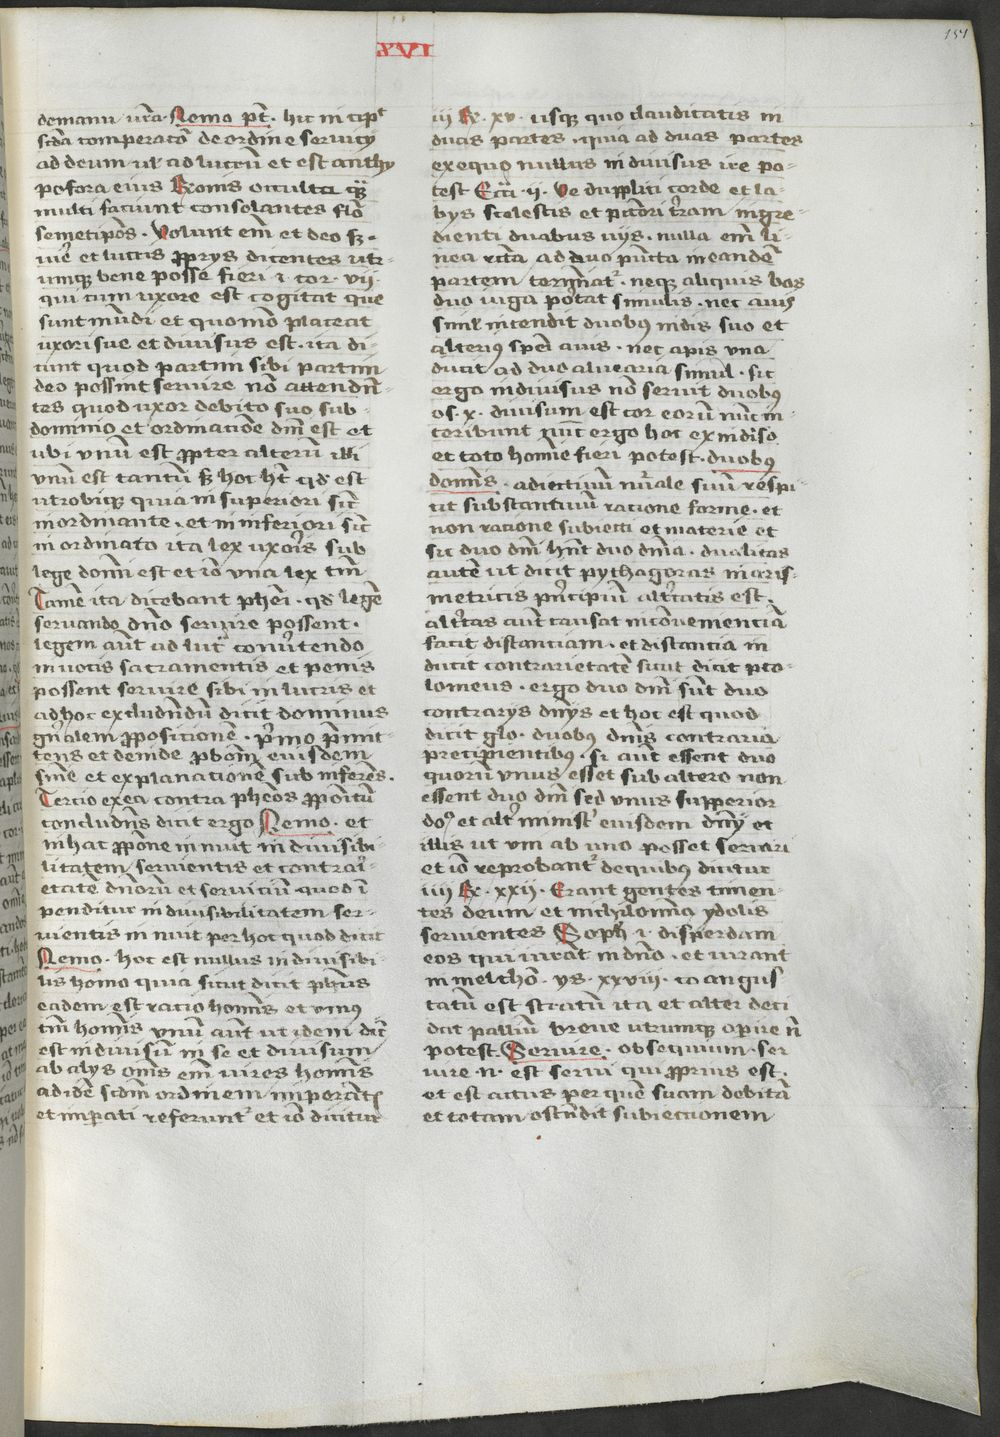 XVI
151
demanu vr̃a. Nemo pt̃. hic incipit
scđa comperatō de ordine servicij
ad deum ul' ad lucrũ et est anthy
pofora eius R̃onis occulta qz̃
multi faciunt consolantes
semetipõs. Volunt em̃ et deo s3.
uir̃e et lucris ꝓprys dicentes utr-
umqz bene posse fieri i cor. vii.
qui cum uxore est cogitat que
sunt mũdi et quomõ placeat
uxori sue et divisus est. ita di-
cunt quod partim sibi partim
deo possint servire nõ attendũt-
tes quod uxor debito suo sub-
dominio et ordinatiõe dm̃ est et
ubi vnũ est ꝓpter alterũ illi
vnũ est tantũ s3 hoc ht̃ qd est
utrobiqz quia in superiori sic̃
in ordinante. et in inferiori sic̃
in ordinato ita lex uxoris sub
lege domĩ est et iõ vna lex tm̃
Tamẽ ita dicebant phẽi. qd legẽ
servando dño servire possent.
legem aũt ad luc̃ cõvertendo
in votis sacramentis et penis
possent servire sibi in lucris et
ad hoc excludẽdũ dicit dominus
gñalem ꝓpositionẽ. p̃mo p̃mit-
tens et deinde ꝓbõem eiusdem
sum̃e et explanationẽ sub inferẽs.
Tercio ex ea contra phẽos ꝓpoĩtũ
concludẽs dicit ergo Nemo. et
in hac ꝓpõne in nuit in divisibi-
litatem servientis et contrari-
etatẽ dñorũ et servitiũ quod ĩ
penditur in divisibilitatem ser-
vientis in nuit per hoc quod dicit
Nemo. hoc est nullus in divisibi-
lis homo quia sicut dicit phũs
eadem est ratio homĩs et vnius
tm̃ homĩs vnũ aũt ut idem dic̃
est indivisũ in se et divisum
ab alys om̃s em̃ vires homĩs
ad idẽ scđm ordinem imperãtis
et imperati referunt' et iõ dicitur
iii R̃. xv. usqz quo claudicatis in
duas partes. quia ad duas partes
ex equo nullus in divisus ire po-
test Ecc̃i. ii. Ve duppliti corde et la-
bys scelestis et peccãtori t̃ram ingre-
dienti duabus vijs. nulla em̃ li-
nea rc̃ta ad duo pũcta in eandẽ
partem termĩat'. neqz aliquis bos
duo iuga portat simulis. nec avis
simul incendit duobq nidis suo et
alteriq spẽi avis. nec apis vna
ducit ad duo aluearia simul. sic
ergo indivisus nõ servit duobq
os. x. divisum est cor eorũ nũc in-
teribunt nũc ergo hoc ex indiso
et toto homĩe fieri potest. duobq
domĩs. adiectivum nũale suũ respi-
cit substantivũ ratione forme. et
non ratione subiecti et materie et
sic duo dm̃ hñt duo dñia. dualitas
autẽ ut dicit pythagoras in aris-
metricis p̃ncipiũ alt̃itatis est.
alt̃itas aũt causat incõvenienciã
facit distanciam. et distancia in
ducit contrarietatẽ sicut dicit pto-
lomeus. ergo duo dm̃ sũt duo
contrarys dñys et hoc est quod
dicit glo. duobq dñis contraria
precipientibq. si aũt essent duo
quorũ vnus esset sub altero non
essent duo dm̃ sed vnus supperior
do9 et alt' minist' eiusdem dñij et
illis ut vni ab uno posset serviri
et iõ reprobant' de quibus dicitur
iiii R̃. xxii. Erant gentes timen-
tes deum et nichilomĩa ydolis
servientes Soph i. disperdam
eos qui iurãt in dño. et iurant
in melchõ. ys. xxviii. coangus
tatũ est stratũ ita et alter deci
dat palliũ breve utrumqz operire ñ
potest. Servire. obsequium. ser
vire .n. est servi qui ꝓprius est.
et est actus per quẽ suam debitã
et totam ostẽdit subiectionem